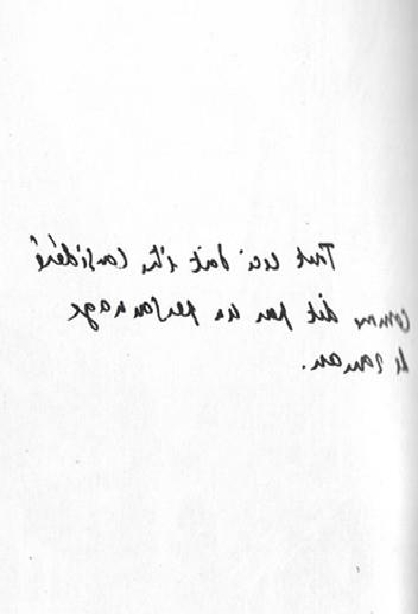 Tout ceci doit être considéré
comme dit par un personnage
de roman.